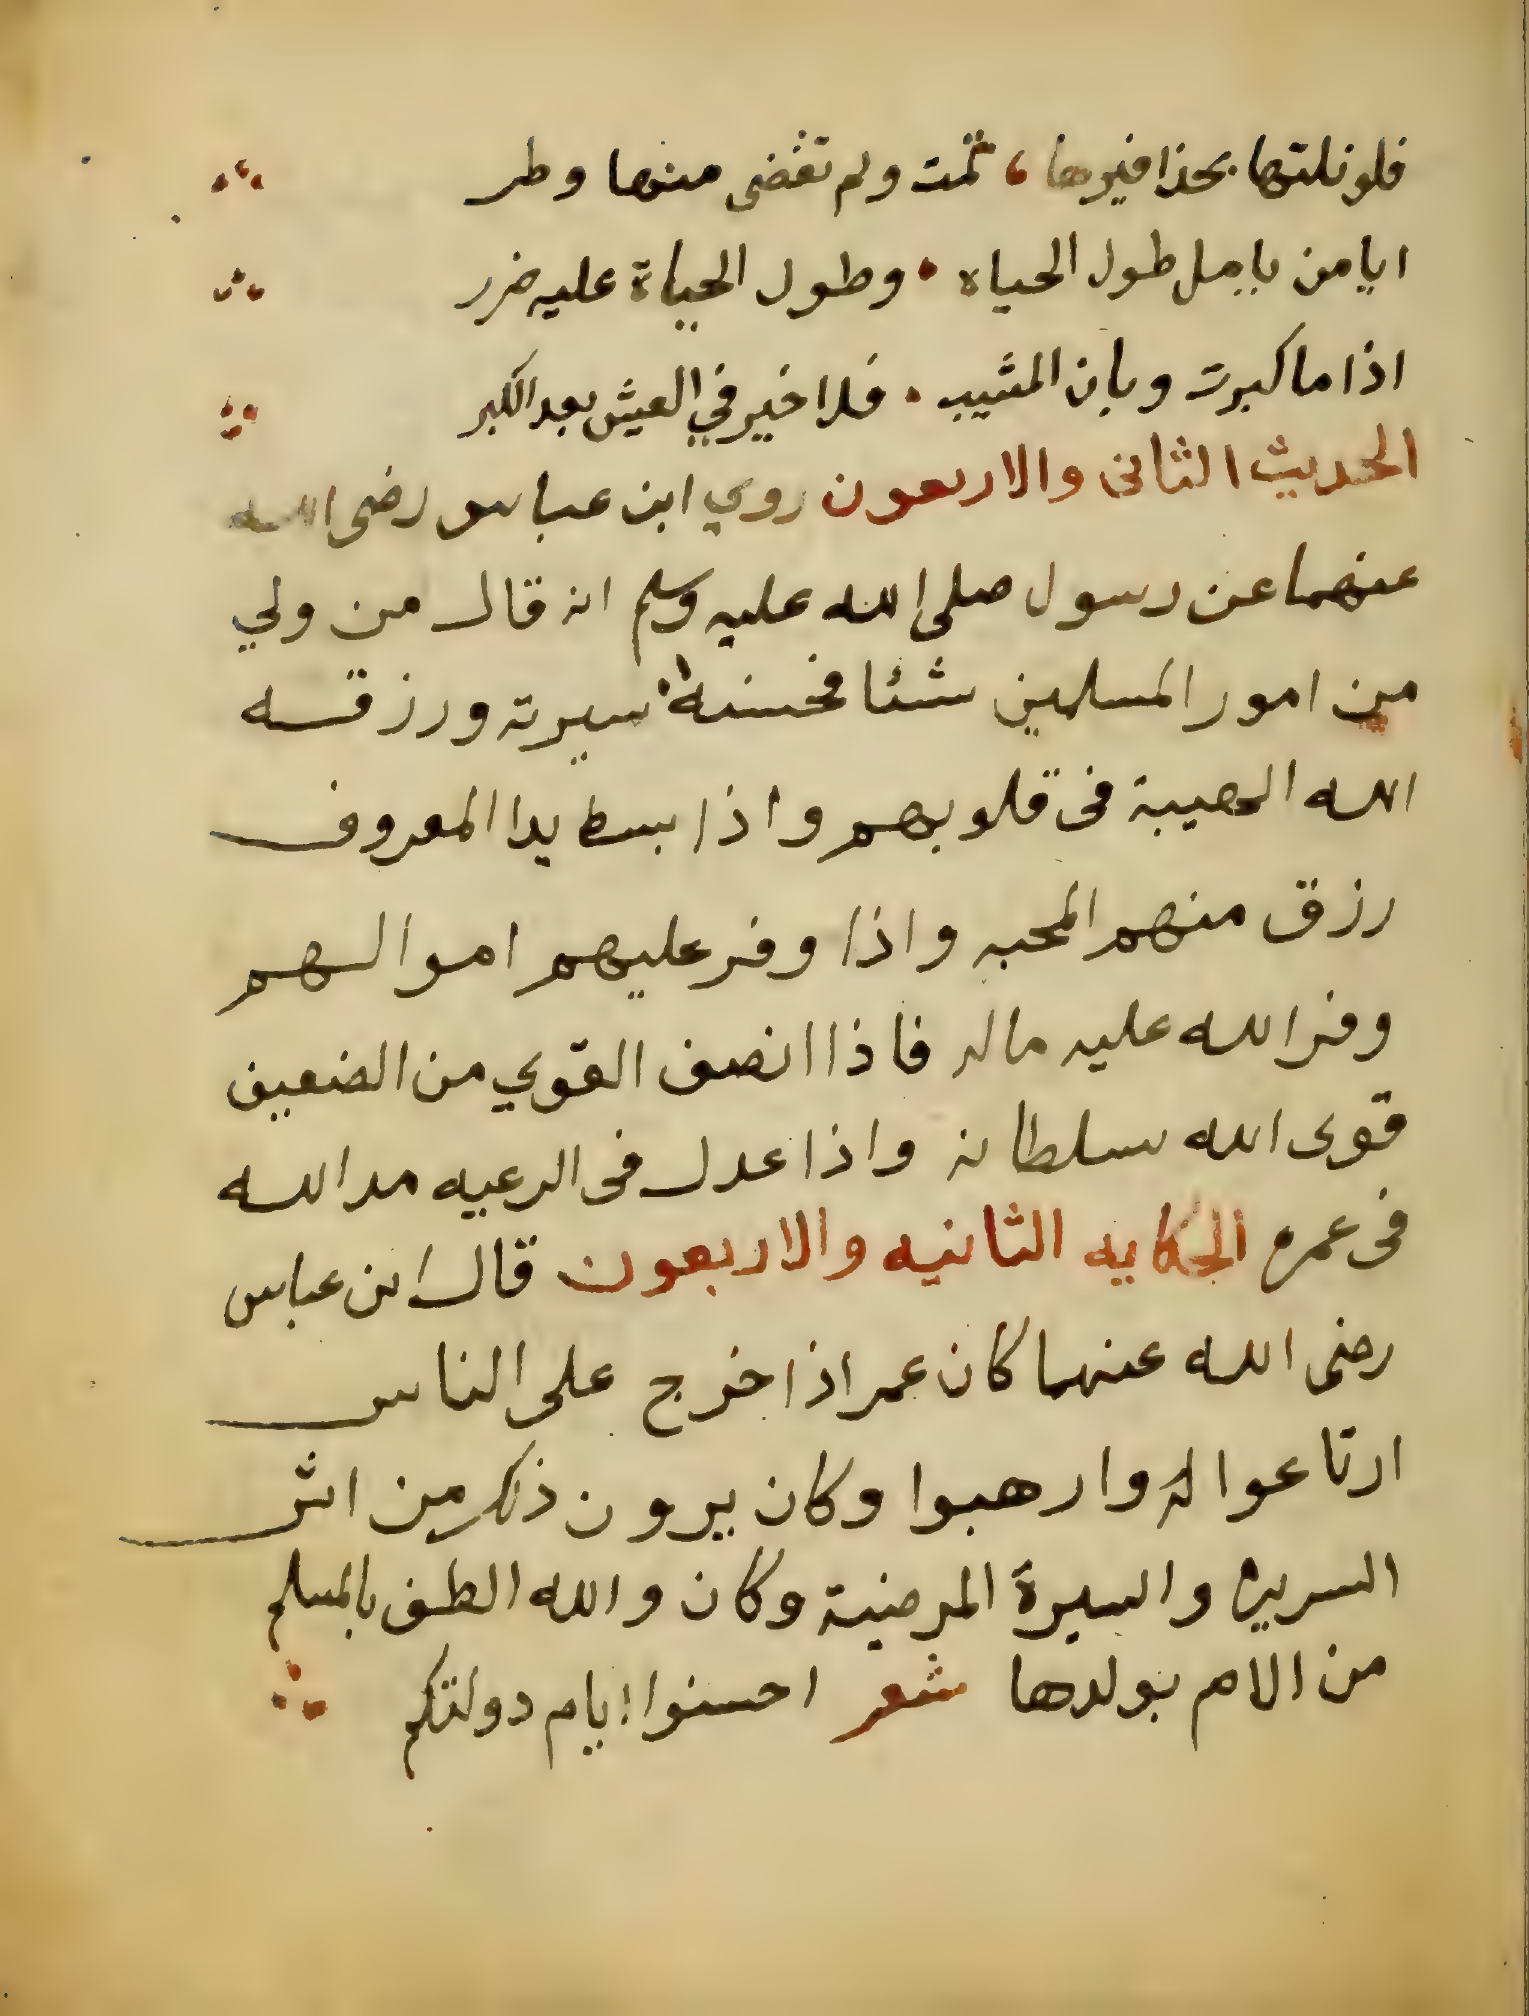 فلو نلتها بحذافيرها ، ثمت ولم تقضى منها وطر
ايا من يامل طول الحياه . وطول الحياة عليه ضرر
اذا ما كبرت وبان المشيب . فلا خير في العيش بعد الكبر
الحديث الثانى والاربعون روي ابن عباس رضى الله
عنهما عن رسول صلى الله عليه وسلم انه قال من ولي
من امور المسلمين شئا فحسنة سيرته ورزقه
الله الهيبة فى قلوبهم واذا بسط يدا المعروف
رزق منهم المحبه واذا وفر عليهم اموالهم
وفر الله عليه ماله فاذا انصف القوي من الضعيف
قوى الله سلطانه واذا عدل فى الرعيه مد الله
فى عمره الحكايه الثانيه والاربعون قال ابن عباس
رضى الله عنهما كان عمر اذا خرج على الناس
ارتاعوا له وارهبوا وكان يرون ذلك من اثر
السريره والسيرة المرضية وكان والله الطف بالمسلم
من الام بولدها شعر احسنوا ايام دولتكم